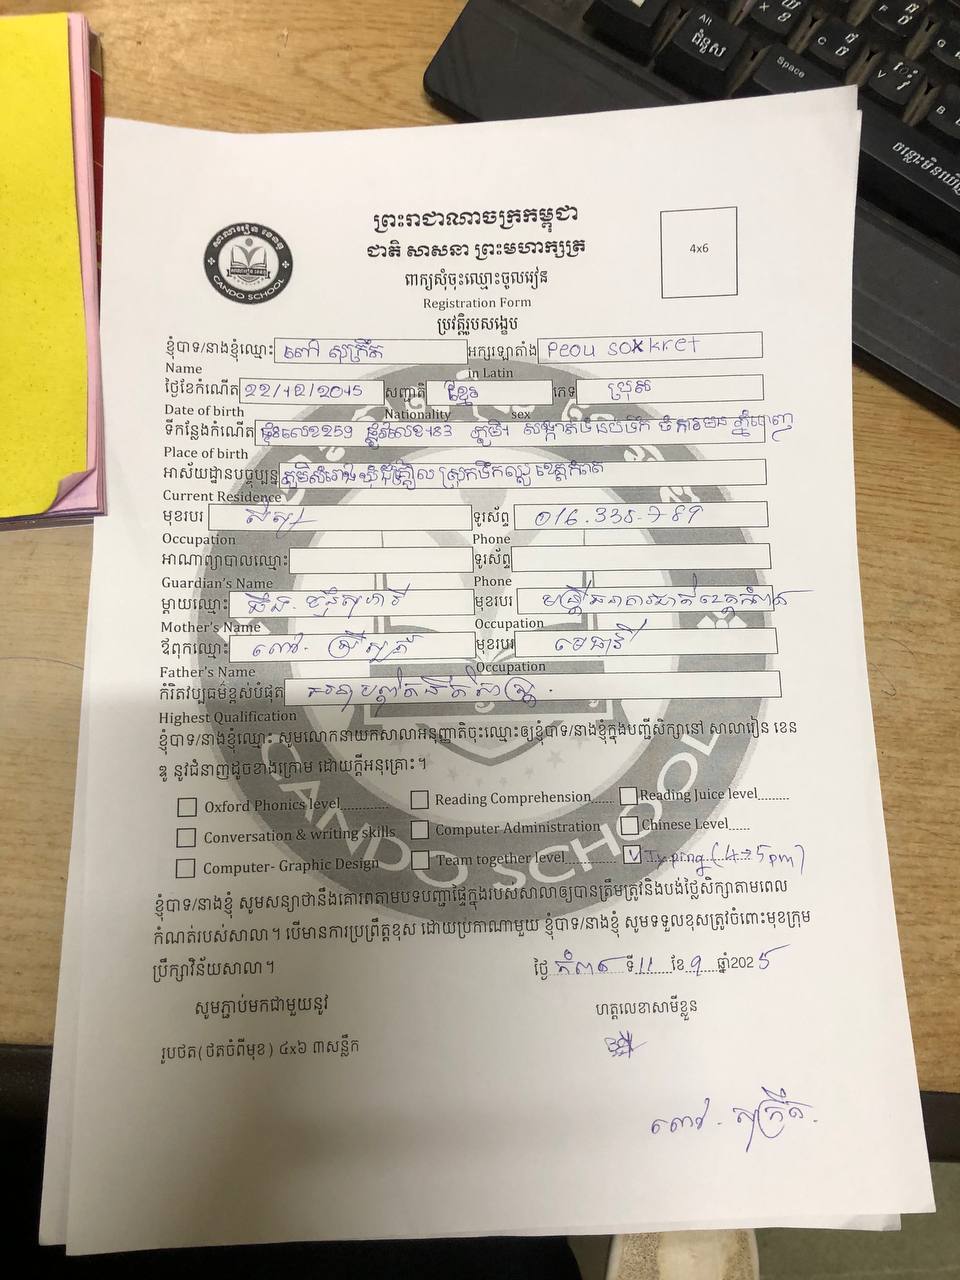 Alt
ជំនួស
Space
C
V
F
G
B
ព្រះរាជាណាចក្រកម្ពុជា
ជាតិ សាសនា ព្រះមហាក្សត្រ
សាលារៀន ខេនឌូ
CANDO SCHOOL
4x6
ពាក្យសុំចុះឈ្មោះចូលរៀន
Registration Form
ប្រវត្តិរូបសង្ខេប
ខ្ញុំបាទ/នាងខ្ញុំឈ្មោះ ពៅ សុក្រឹត អក្សរឡាតាំង Peou sokkret
Name in Latin
ថ្ងៃខែកំណើត 22/12/2015 សញ្ជាតិ ខ្មែរ ភេទ ប្រុស
Date of birth Nationality sex
ទីកន្លែងកំណើត ផ្ទះលេខ259 ផ្លូវលេខ183 ភូមិ1 សង្កាត់ទំនប់ទឹក ចំការមន ភ្នំពេញ
Place of birth
អាស័យដ្ឋានបច្ចុប្បន្ន ភូមិសំរោង ឃុំជុំគ្រៀល ស្រុកទឹកឈូ ខេត្តកំពត
Current Residence
មុខរបរ សិស្ស ទូរស័ព្ទ 016.338.789
Occupation Phone
អាណាព្យាបាលឈ្មោះ ទូរស័ព្ទ
Guardian's Name Phone
ម្តាយឈ្មោះ មុខរបរ មន្ត្រីធនាគារជាតិខេត្តកំពត
Mother's Name Occupation
ឪពុកឈ្មោះ ពៅ. មុខរបរ មេធាវី
Father's Name Occupation
កំរិតវប្បធម៌ខ្ពស់បំផុត
Highest Qualification
ខ្ញុំបាទ/នាងខ្ញុំឈ្មោះ សូមលោកនាយកសាលាអនុញ្ញាតិចុះឈ្មោះឲ្យខ្ញុំបាទ/នាងខ្ញុំក្នុងបញ្ជីសិក្សានៅ សាលារៀន ខេន
ឌូ នូវជំនាញដូចខាងក្រោម ដោយក្តីអនុគ្រោះ។
Oxford Phonics level............ Reading Comprehension...... Reading Juice level.........
Conversation & writing skills Computer Administration Chinese Level.....
Computer- Graphic Design Team together level............. Typing (4→5pm)
ខ្ញុំបាទ/នាងខ្ញុំ សូមសន្យាថានឹងគោរពតាមបទបញ្ជាផ្ទៃក្នុងរបស់សាលាឲ្យបានត្រឹមត្រូវនិងបង់ថ្លៃសិក្សាតាមពេល
កំណត់របស់សាលា។ បើមានការប្រព្រឹត្តខុស ដោយប្រកាណាមួយ ខ្ញុំបាទ/នាងខ្ញុំ សូមទទួលខុសត្រូវចំពោះមុខក្រុម
ប្រឹក្សាវិន័យសាលា។ ថ្ងៃ កំពត ទី 11 ខែ 9 ឆ្នាំ2025
សូមភ្ជាប់មកជាមួយនូវ ហត្ថលេខាសាមីខ្លួន
រូបថត(ថតចំពីមុខ) ៤x៦ ៣សន្លឹក
ពៅ. សុក្រឹត.